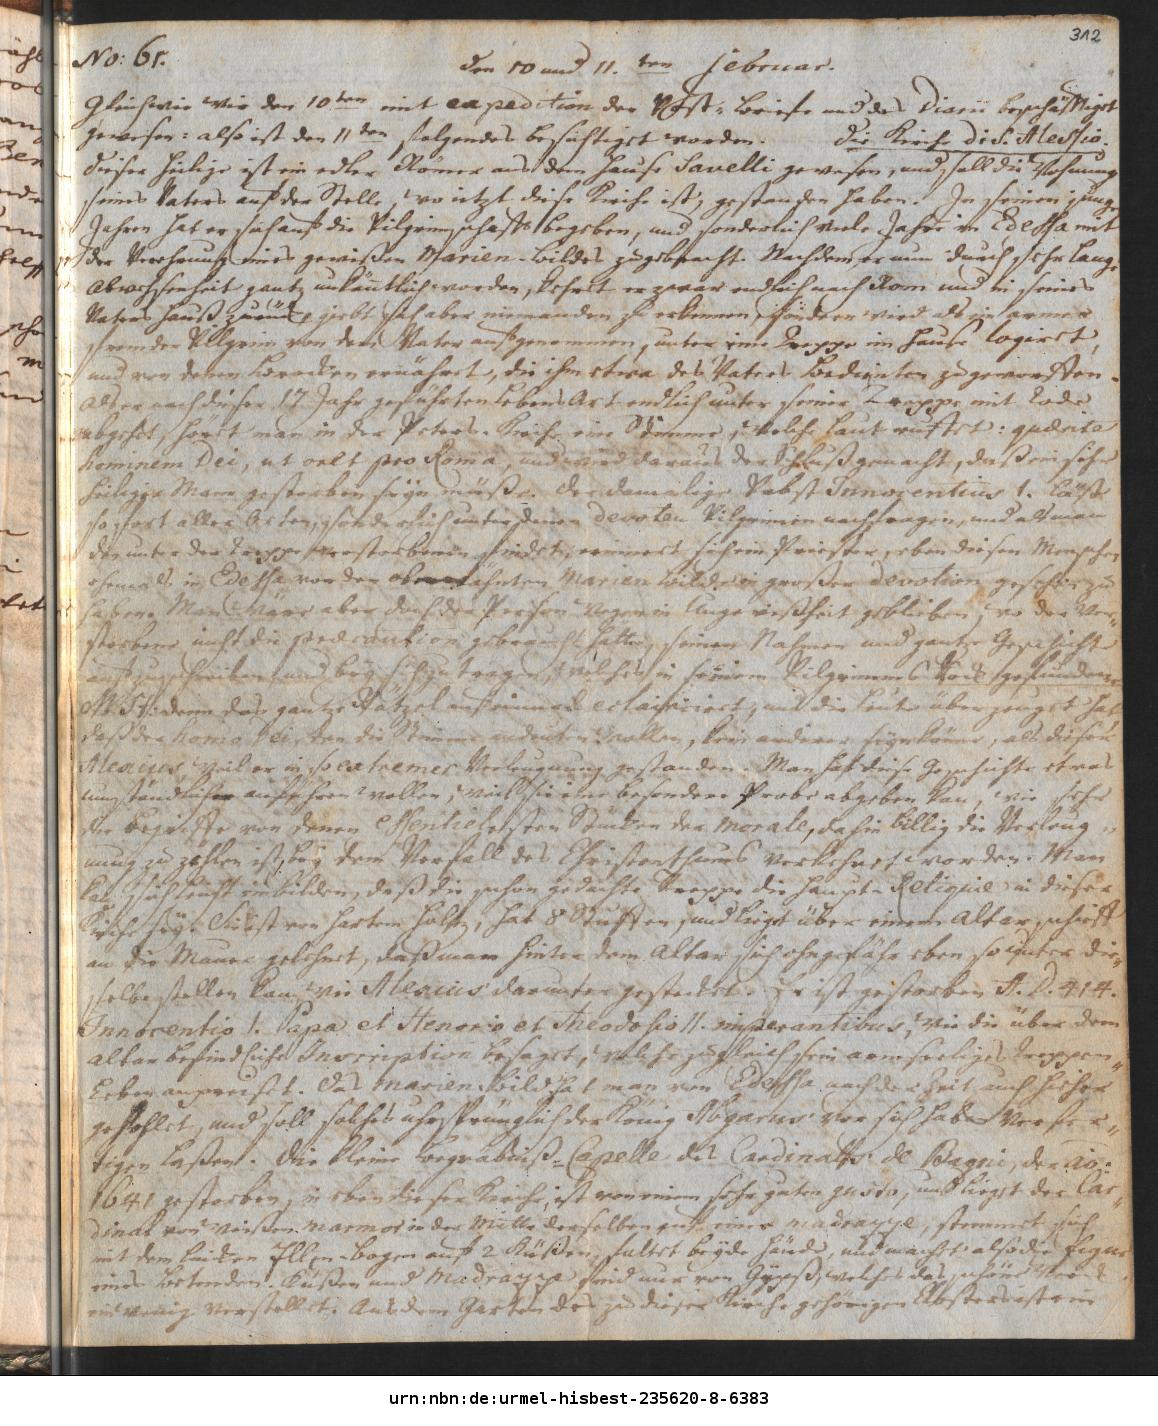 312
No: 61.
den 10 und 11.ten Februar.
Gleichwie wir den 10ten mit expedition der Post-Briefe und des Diarii beschäfftiget
gewesen: also ist den 11ten folgendes besichtiget worden. Die Kirche di S. Alessio.
dieser Heilige ist ein edler Römer aus dem Hause Savelli gewesen, und soll die Wohnung
seines Vaters auf der Stelle, wo ietzt diese Kirche ist, gestanden haben. In seinen jungen
Jahren hat er sich auf die Pilgrimschafft begeben, und sonderlich viele Jahre in Edessa mit
der Verehrung eines gewißen Marien-Bildes zugebracht. Nachdem er nun durch sehr lange
Abwesenheit gantz unkäntlich worden, kehret er zwar endlich nach Rom und in seines
Vaters Hauß zurück, giebt sich aber niemanden zu erkennen, sondern wird als ein armer
fremder Pilgrim von dem Vater aufgenommen, unter eine Treppe im Hause logiret,
und von denen Brocken ernähret, die ihm etwa des Vaters Bedienten zugeworffen.
Als er nach dieser 17 Jahr geführten Lebens Art endlich unter seiner Treppe mit Tode
abgehet, höret man in der Peters-Kirche eine Stimme, welche laut ruffet: quærite
hominem Dei, ut oret pro Roma, und wird daraus der Schluß gemacht, daß ein sehr
heiliger Mann gestorben seyn müße. Der damalige Pabst Innocentius 1. läßt
sofort aller Orten, sonderlich unter denen devoten Pilgrimen nachfragen, und als man
den unter der Treppe verstorbenen findet, erinnert sich ein Priester, eben diesen Menschen
ehemals in Edessa vor den oberwähnten Marien Bilde in großer devotion gesehen zu
haben. Man wäre aber doch der Person wegen in Ungewißheit geblieben, wo der Ver-
storbene nicht die præcaution gebraucht hätte, seinen Nahmen und gantze Geschichte
aufzuschreiben und bey sich zu tragen, welches in seinem Pilgrimms Rock gefundene
MSt. denn das gantze Rätzel auf einmal eclairciret, und die Leute überzeuget hat
daß der homo Dei, den die Stimme andeuten wollen, kein anderer seyn könne, als dieser
Alexius, weil er in so extremer Verleugnung gestanden. Man hat diese Geschichte etwas
umständlicher anführen wollen, weil sie eine besondere Probe abgeben kan, wie sehr
die Begriffe von denen essentielesten Stücken der Morale, dahin billig die Verleug-
nung zu zehlen ist, bey dem Verfall des Christenthums verkehret worden. Man
kan sich leicht einbilden, daß die schon gedachte Treppe die Haupt-Reliquie in dieser
Kirche sey. Sie ist von hartem Holtz, hat 8 Stuffen, und liegt über einem Altar, schieff
an die Mauer gelehnet, daß man hinter dem Altar sich ohngefähr eben so unter die-
selbe stellen kan, wie Alexius darunter gestecket. Er ist gestorben A. D. 414.
Innocentio 1. Papa et Honorio et Theodosio II. imperantibus, wie die über dem
Altar befindliche Inscription besaget, welche zugleich sein armseeliges Treppen-
Leben anpreiset. Das Marien-Bild hat man von Edessa nach der Zeit auch hieher
gehohlet, und soll solches uhrsprünglich der König Abgarus vor sich haben verfer-
tigen laßen. Die kleine Begräbniß-Capelle des Cardinals de Bagni, der ao.
1641 gestorben, in eben dieser Kirche, ist von einem sehr guten gusto, und lieget der Car-
dinal von weißen marmor in der Mitte derselben auf einer madrazze, stemmet sich
mit dem lincken Ellen-Bogen auf 2 Küßen, faltet beyde Hände, und machet also die Figur
eines Betenden. Küßen und Madrazze sind nur von Gypß, welches das schöne Werck
ein wenig verstellet. Aus dem Garten des zu dieser Kirche gehörigen Closters ist ein
urn:nbn:de:urmel-hisbest-235620-8-6383